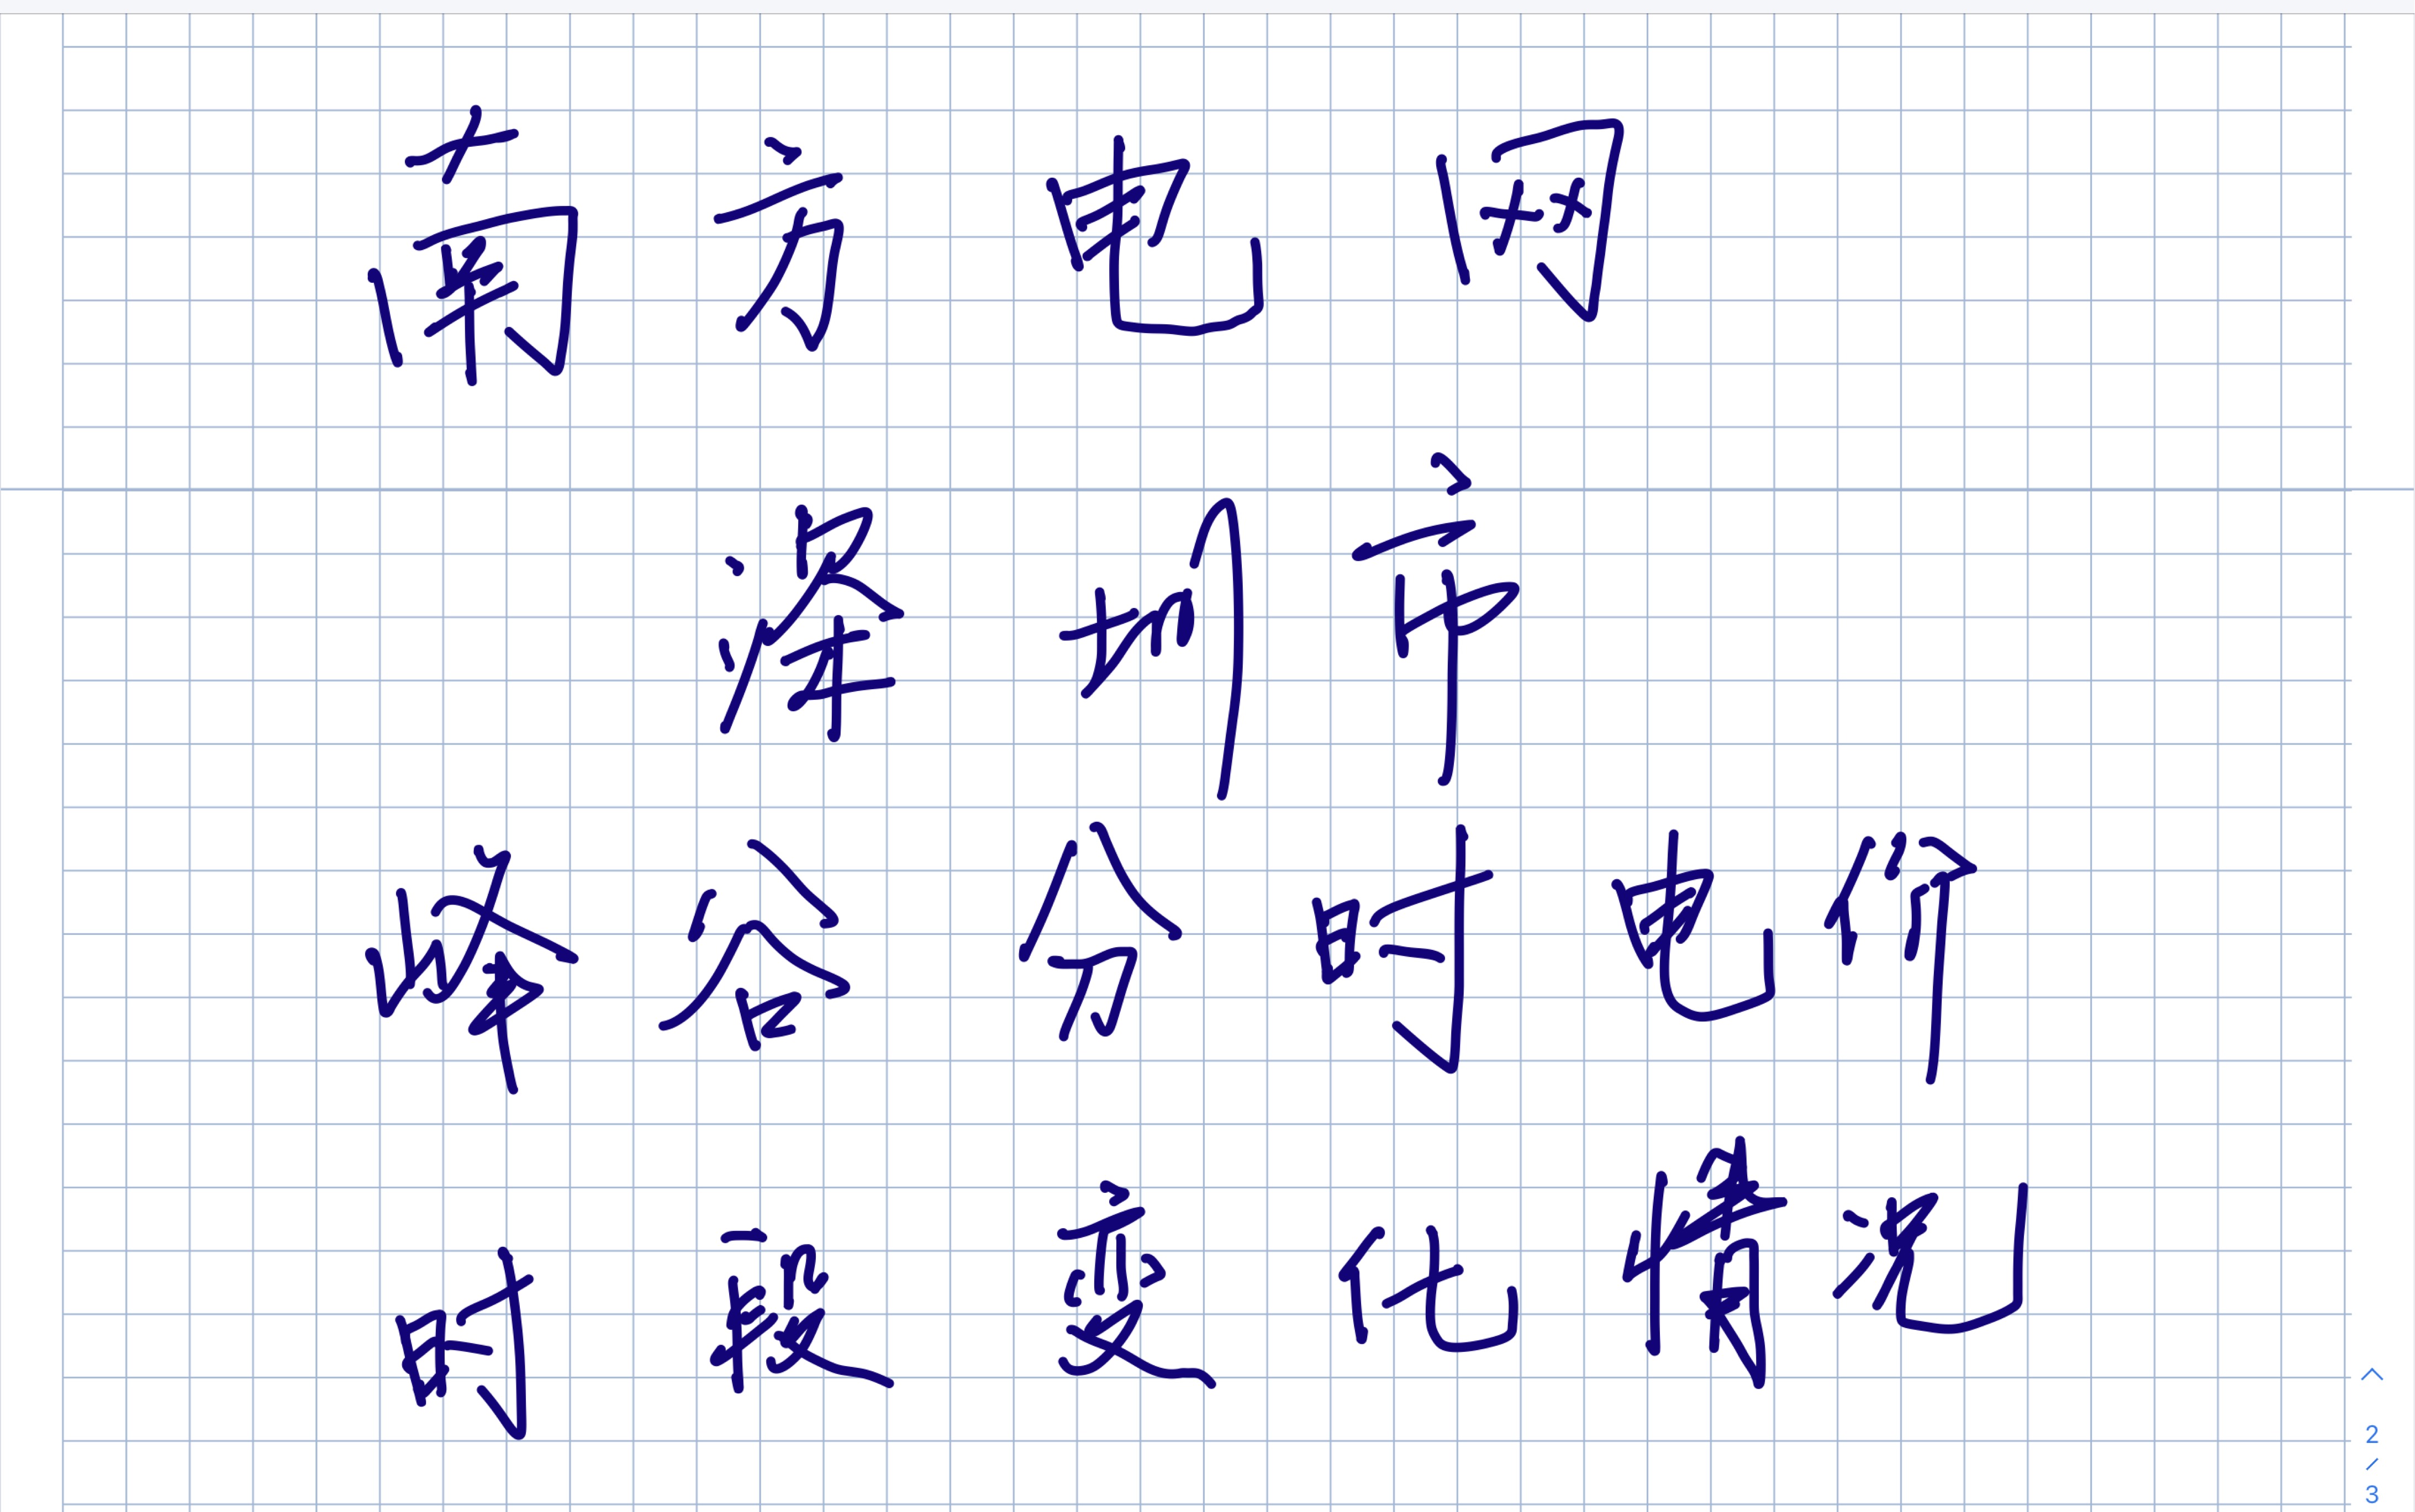 南方电网
深圳市
峰谷分时电价
时段变化情况
2
/
3